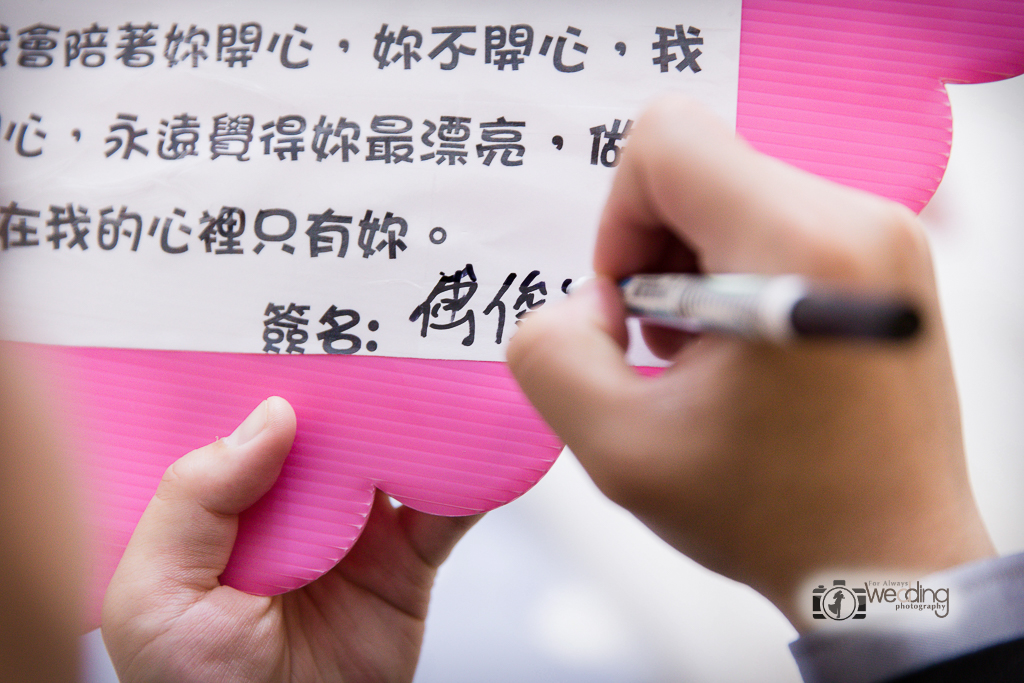 我會陪著妳開心，妳不開心，我
心，永遠覺得妳最漂亮，做
在我的心裡只有妳。
簽名: 傅俊
For Always
wedding
photography